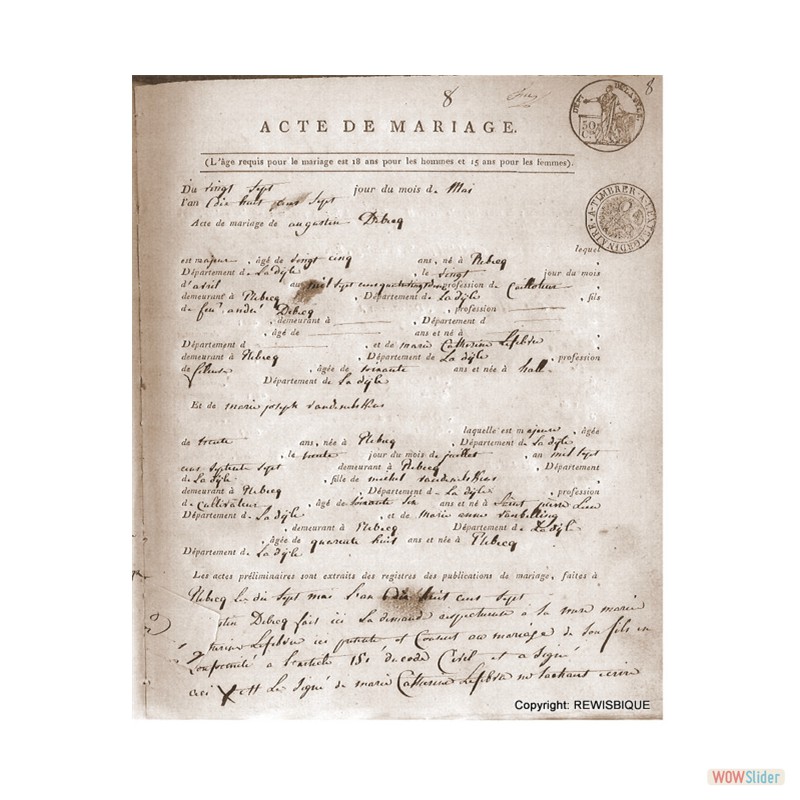 8
8
DEPT DE LA DYLE
50 C.
ACTE DE MARIAGE.
(L'âge requis pour le mariage est 18 ans pour les hommes et 15 ans pour les femmes).
Du vingt sept jour du mois d. Mai
l'an dix huit cens sept
A TIMBRER EXTRAORDINAIRE
Acte de mariage de augustin Debecq
lequel
est majeur, âgé de vingt cinq ans, né à Rebecq
Département d. La dijle, le vingt jour du mois
d'avril an mil sept cens quatre vingt profession de
demeurant à Rebecq, Département d. La dijle, fils
de feu andré Debecq, profession
, demeurant à Département d
, âgé de ans et né à
Département d et de marie Catherine Lefebve
demeurant à Rebecq, Département de La dijle, profession
de fileuse, âgée de soixante ans et née à hall
Département d. La dijle
Et de marie joseph
laquelle est majeure, âgée
de trente ans, née à Rebecq, Département d. La dijle
, le trente jour du mois de juillet, an mil sept
cens septante sept demeurant à Rebecq Département
d. La dijle, fille de michel
demeurant à Rebecq, Département d. La dijle, profession
d. cultivateur, âgé de soixante six ans et né à Saint pierre Leeu
Département d. La dijle, et de Marie anne
, demeurant à Rebecq Département d. La dijle
, âgée de quarente huit ans et née à Rebecq
Département d. La dijle
Les actes préliminaires sont extraits des registres des publications de mariage, faites à
Rebecq le dix sept mai l'an dix huit cens sept
Debecq fait ici La demande respectueuse à sa mere marie
Lefebve ici presente et Consent au mariage de son fils en
Conformité à l'article 151 du code Civil et a signé
ceci X est Le signé de marie Catherine Lefebve ne sachant écrire
Copyright: REWISBIQUE
WOWSlider